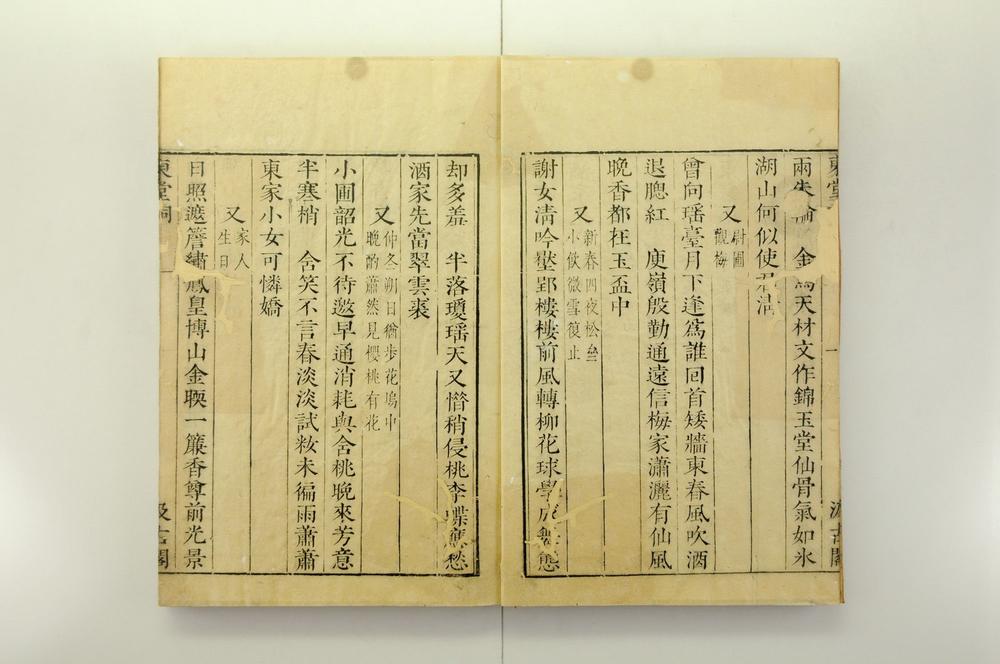 東堂
汲古閣
兩失論　金馬天材文作錦玉堂仙骨氣如氷
湖山何似使君淸
又
尉圃
觀梅
曾向瑶臺月下逢爲誰回首矮牆東春風吹酒
退腮紅　庾嶺殷勤通遠信梅家瀟灑有仙風
晚香都在玉盃中
又
新春四夜松壘
小飲微雪復止
謝女淸吟壓郢樓樓前風轉柳花球學成舞態
却多羞　半落瓊瑶天又惜稍侵桃李蝶應愁
酒家先當翠雲裘
又
仲冬朔日猶步花塢中
晚酌蕭然見櫻桃有花
小圃韶光不待邀早通消耗與含桃晚來芳意
半寒梢　含笑不言春淡淡試妝未徧雨蕭蕭
東家小女可憐嬌
又
家人
生日
日照遮簷繡鳳皇博山金暖一簾香尊前光景
東堂詞
汲古閣